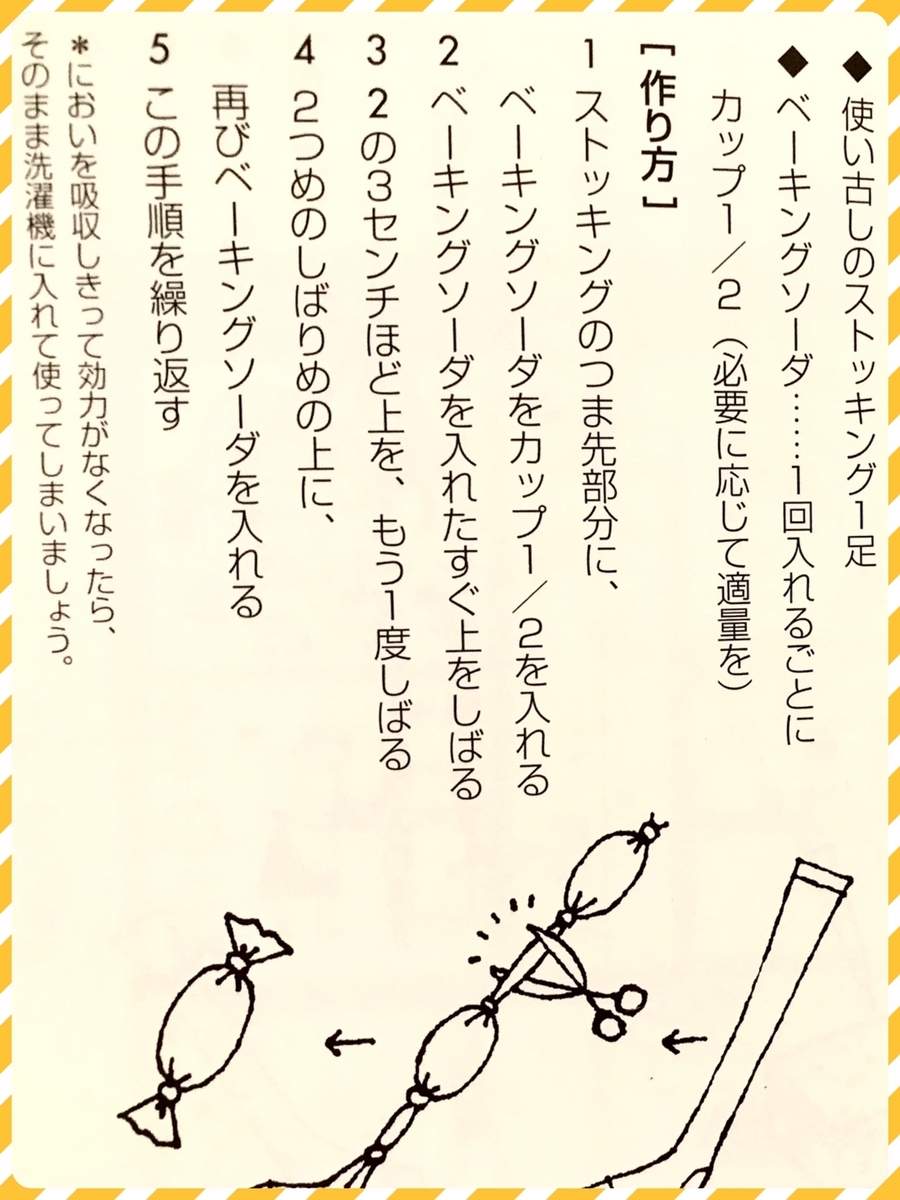 ◆ 使い古しのストッキング1足
◆ ベーキングソーダ……1回入れるごとに
カップ1／2（必要に応じて適量を）
［作り方］
1 ストッキングのつま先部分に、
ベーキングソーダをカップ1／2を入れる
2 ベーキングソーダを入れたすぐ上をしばる
3 2の3センチほど上を、もう1度しばる
4 2つめのしばりめの上に、
再びベーキングソーダを入れる
5 この手順を繰り返す
＊においを吸収しきって効力がなくなったら、
そのまま洗濯機に入れて使ってしまいましょう。